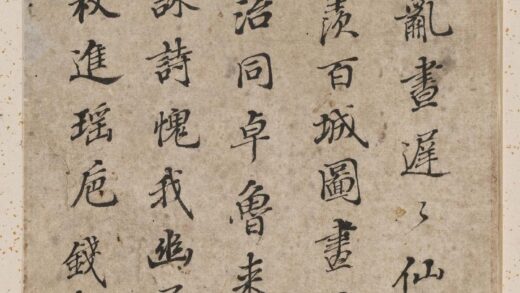 亂晝遲〻仙
羡百城圖畫
治同卓魯来
詠詩愧我幽
進瑶巵錢